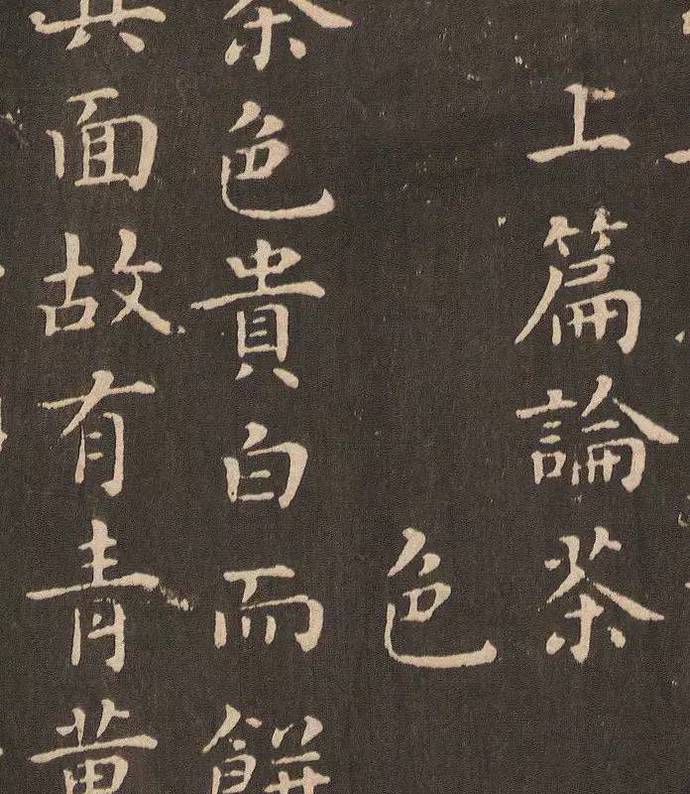 上篇論茶
色
茶色貴白而餅
其面故有青黃